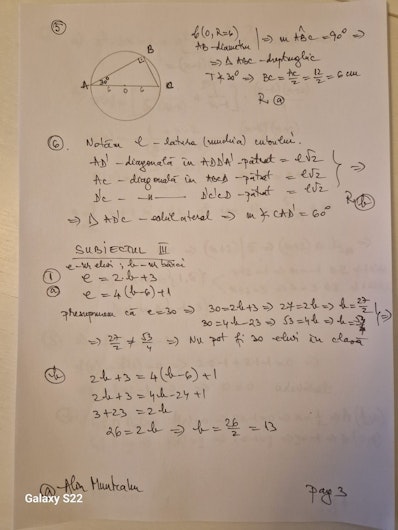 ⑤ B A 30° 6 O 6 C
C(O, R=6)
AB-diametru | ⇒ m ABC = 90° ⇒
⇒ Δ ABC - dreptunghic
T∢30° ⇒ BC = AC/2 = 12/2 = 6 cm
R: ⓐ
⑥. Notăm l - latura (muchia) cubului.
AD' - diagonală în ADD'A' - pătrat = l√2
AC - diagonală în ABCD - pătrat = l√2 } ⇒
D'C - —"— D'C'CD - pătrat = l√2
R: ⓑ
⇒ Δ AD'C - echilateral ⇒ m∢CAD' = 60°
SUBIECTUL III
e - nr elevi ; b - nr bănci
① e = 2·b + 3
ⓐ e = 4(b-6)+1
presupunem că e=30 ⇒ 30=2b+3 ⇒ 27=2b ⇒ b=27/2
30=4b-23 ⇒ 53=4b ⇒ b=53/4 | ⇒
⇒ 27/2 ≠ 53/4 ⇒ Nu pot fi 30 elevi în clasă
ⓑ 2b+3 = 4(b-6)+1
2b+3 = 4b-24+1
3+23 = 2b
26=2b ⇒ b = 26/2 = 13
@ Alin
Galaxy S22
pag 3